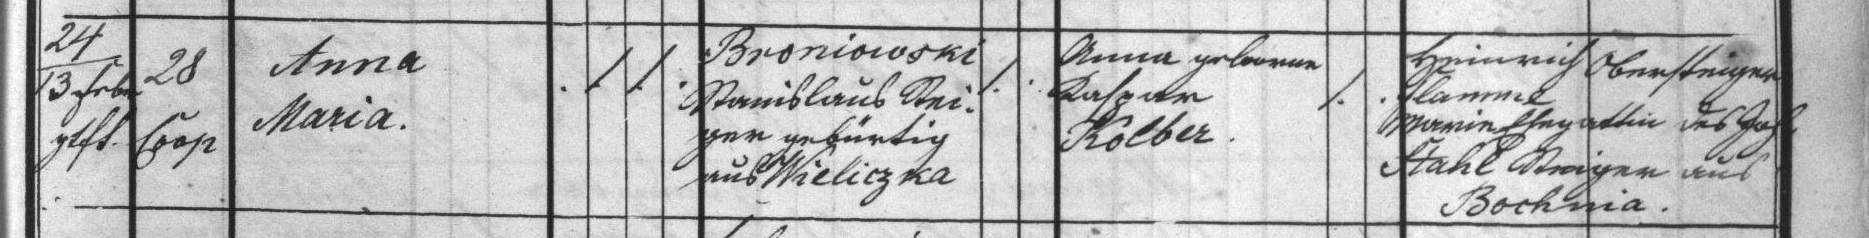 24
13 Febr
gtft.
28
Coop
Anna
Maria.
Broniowski
Stanislaus Stei-
ger gebürtig
aus Wieliczka
Anna geborne
Kaspar
Kolber.
Heinrich Obersteiger
Flamme
Marie Ehegattin des Joh.
Stahl Steiger aus
Bochnia.